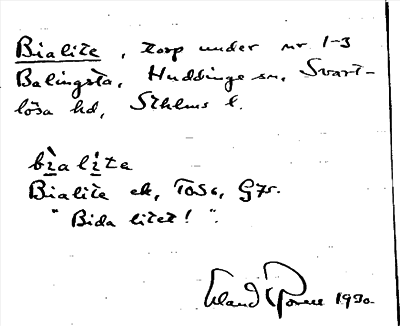 Bialite, torp under nr 1-3
Balingsta, Huddinge sn, Svart-
lösa hd, Sthlms l.
bìalíte
Bialite ek, T056, G75.
"Bida litet!".
Erland 1930.